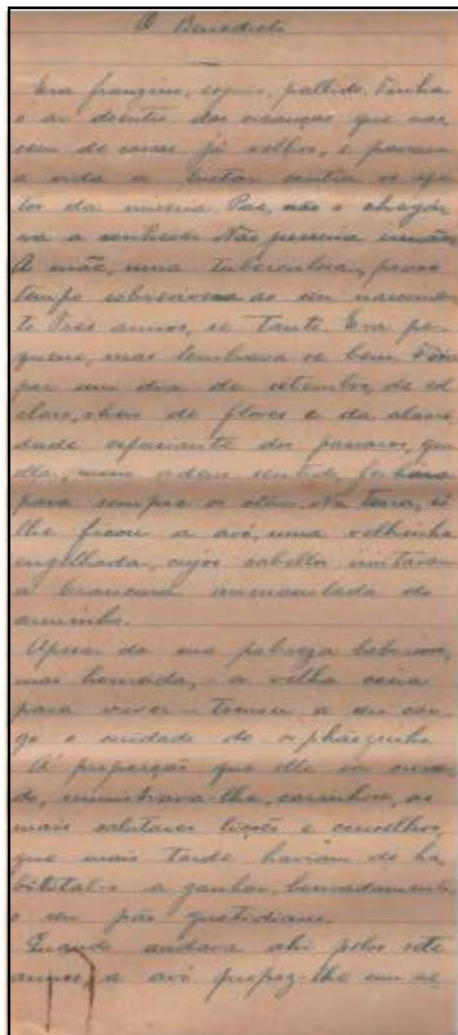 O Benedicto
Era franzino, esguio, pallido. Tinha
o ar doentio das creanças que nas
cem de casaes já velhos, e passava
a vida a luctar contra os
da miseria. Pae, não o chegá
ra a conhecer. Não possuia irmãos.
A mãe, uma tuberculosa, pouco
tempo sobrevivera ao seu nascimen
to. Tres annos, se tanto. Era pe
queno, mas lembrava-se bem. Fôra
por um dia de setembro, de sol
claro, cheio de flores e da alacri
dade dos passaros, que
ella, num adeus sentido, fechára
para sempre os olhos. Na terra, só
lhe ficou a avó, uma velhinha
engelhada, cujos cabellos imitavam
a brancura immaculada do
arminho.
Apesar da sua pobreza laboriosa,
mas honrada, a velha cosia
para viver – tomou a seu car
go o cuidado do orphãozinho
Á proporção que elle ia crescen
do, ministrava-lhe, carinhosa, as
mais salutares lições e conselhos,
que mais tarde haviam de ha
bilital-o a ganhar, honradamente,
o seu pão quotidiano.
Quando andava ahi pelos sete
annos, a avó propoz-lhe um se